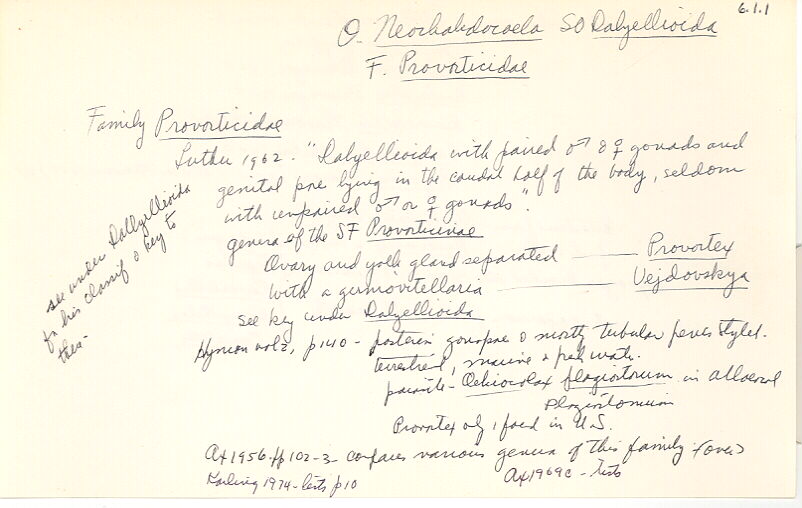 6.1.1
O. Neorhabdocoela SO Dalyellioida
F. Provorticidae
Family Provorticidae
Luther 1962. "Dalyellioida with paired ♂ & ♀ gonads and
genital pore lying in the caudal half of the body, seldom
with unpaired ♂ or ♀ gonads".
genera of the SF Provorticinae
Ovary and yolk gland separated —— Provortex
With a germovitellaria —— Vejdovskya
see key under Dalyellioida
see under Dallyellioida
for his classif & key to
them-
Hyman vol 2, p140 - posterior gonopore & mostly tubular penis stylet.
terrestrial, marine & fresh water.
parasite - Oekiocolax plagiostorum in alloeocoel
Plagiostomum
Provortex only 1 found in U.S.
Ax 1956. pp 102-3 - compares various genera of this family (over)
Karling 1974 - lists p10
Ax 1969c - lists